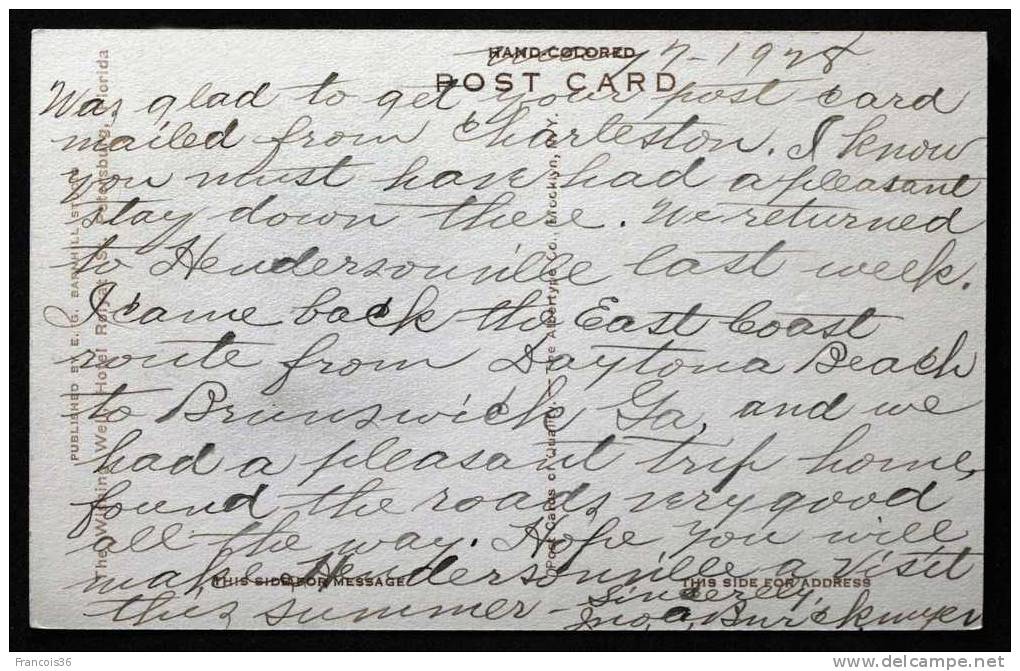 HAND-COLORED
POST CARD
7-1928
Was glad to get your post card
mailed from Charleston. I know
you must have had a pleasant
stay down there. We returned
to Hendersonville last week.
I came back the East Coast
route from Daytona Beach
to Brunswick Ga, and we
had a pleasant trip home,
found the roads very good
all the way. Hope you will
make Hendersonville a visit
this summer -
Sincerely,
Jno. A.
THIS SIDE FOR MESSAGE
THIS SIDE FOR ADDRESS
PUBLISHED BY E. G. BARNHILL STUDIO
The Wishing Well, Hotel Royal, St. Petersburg, Florida
Post Cards of Quality. — The Albertype Co., Brooklyn, N.Y.
Francois36
www.delcampe.net